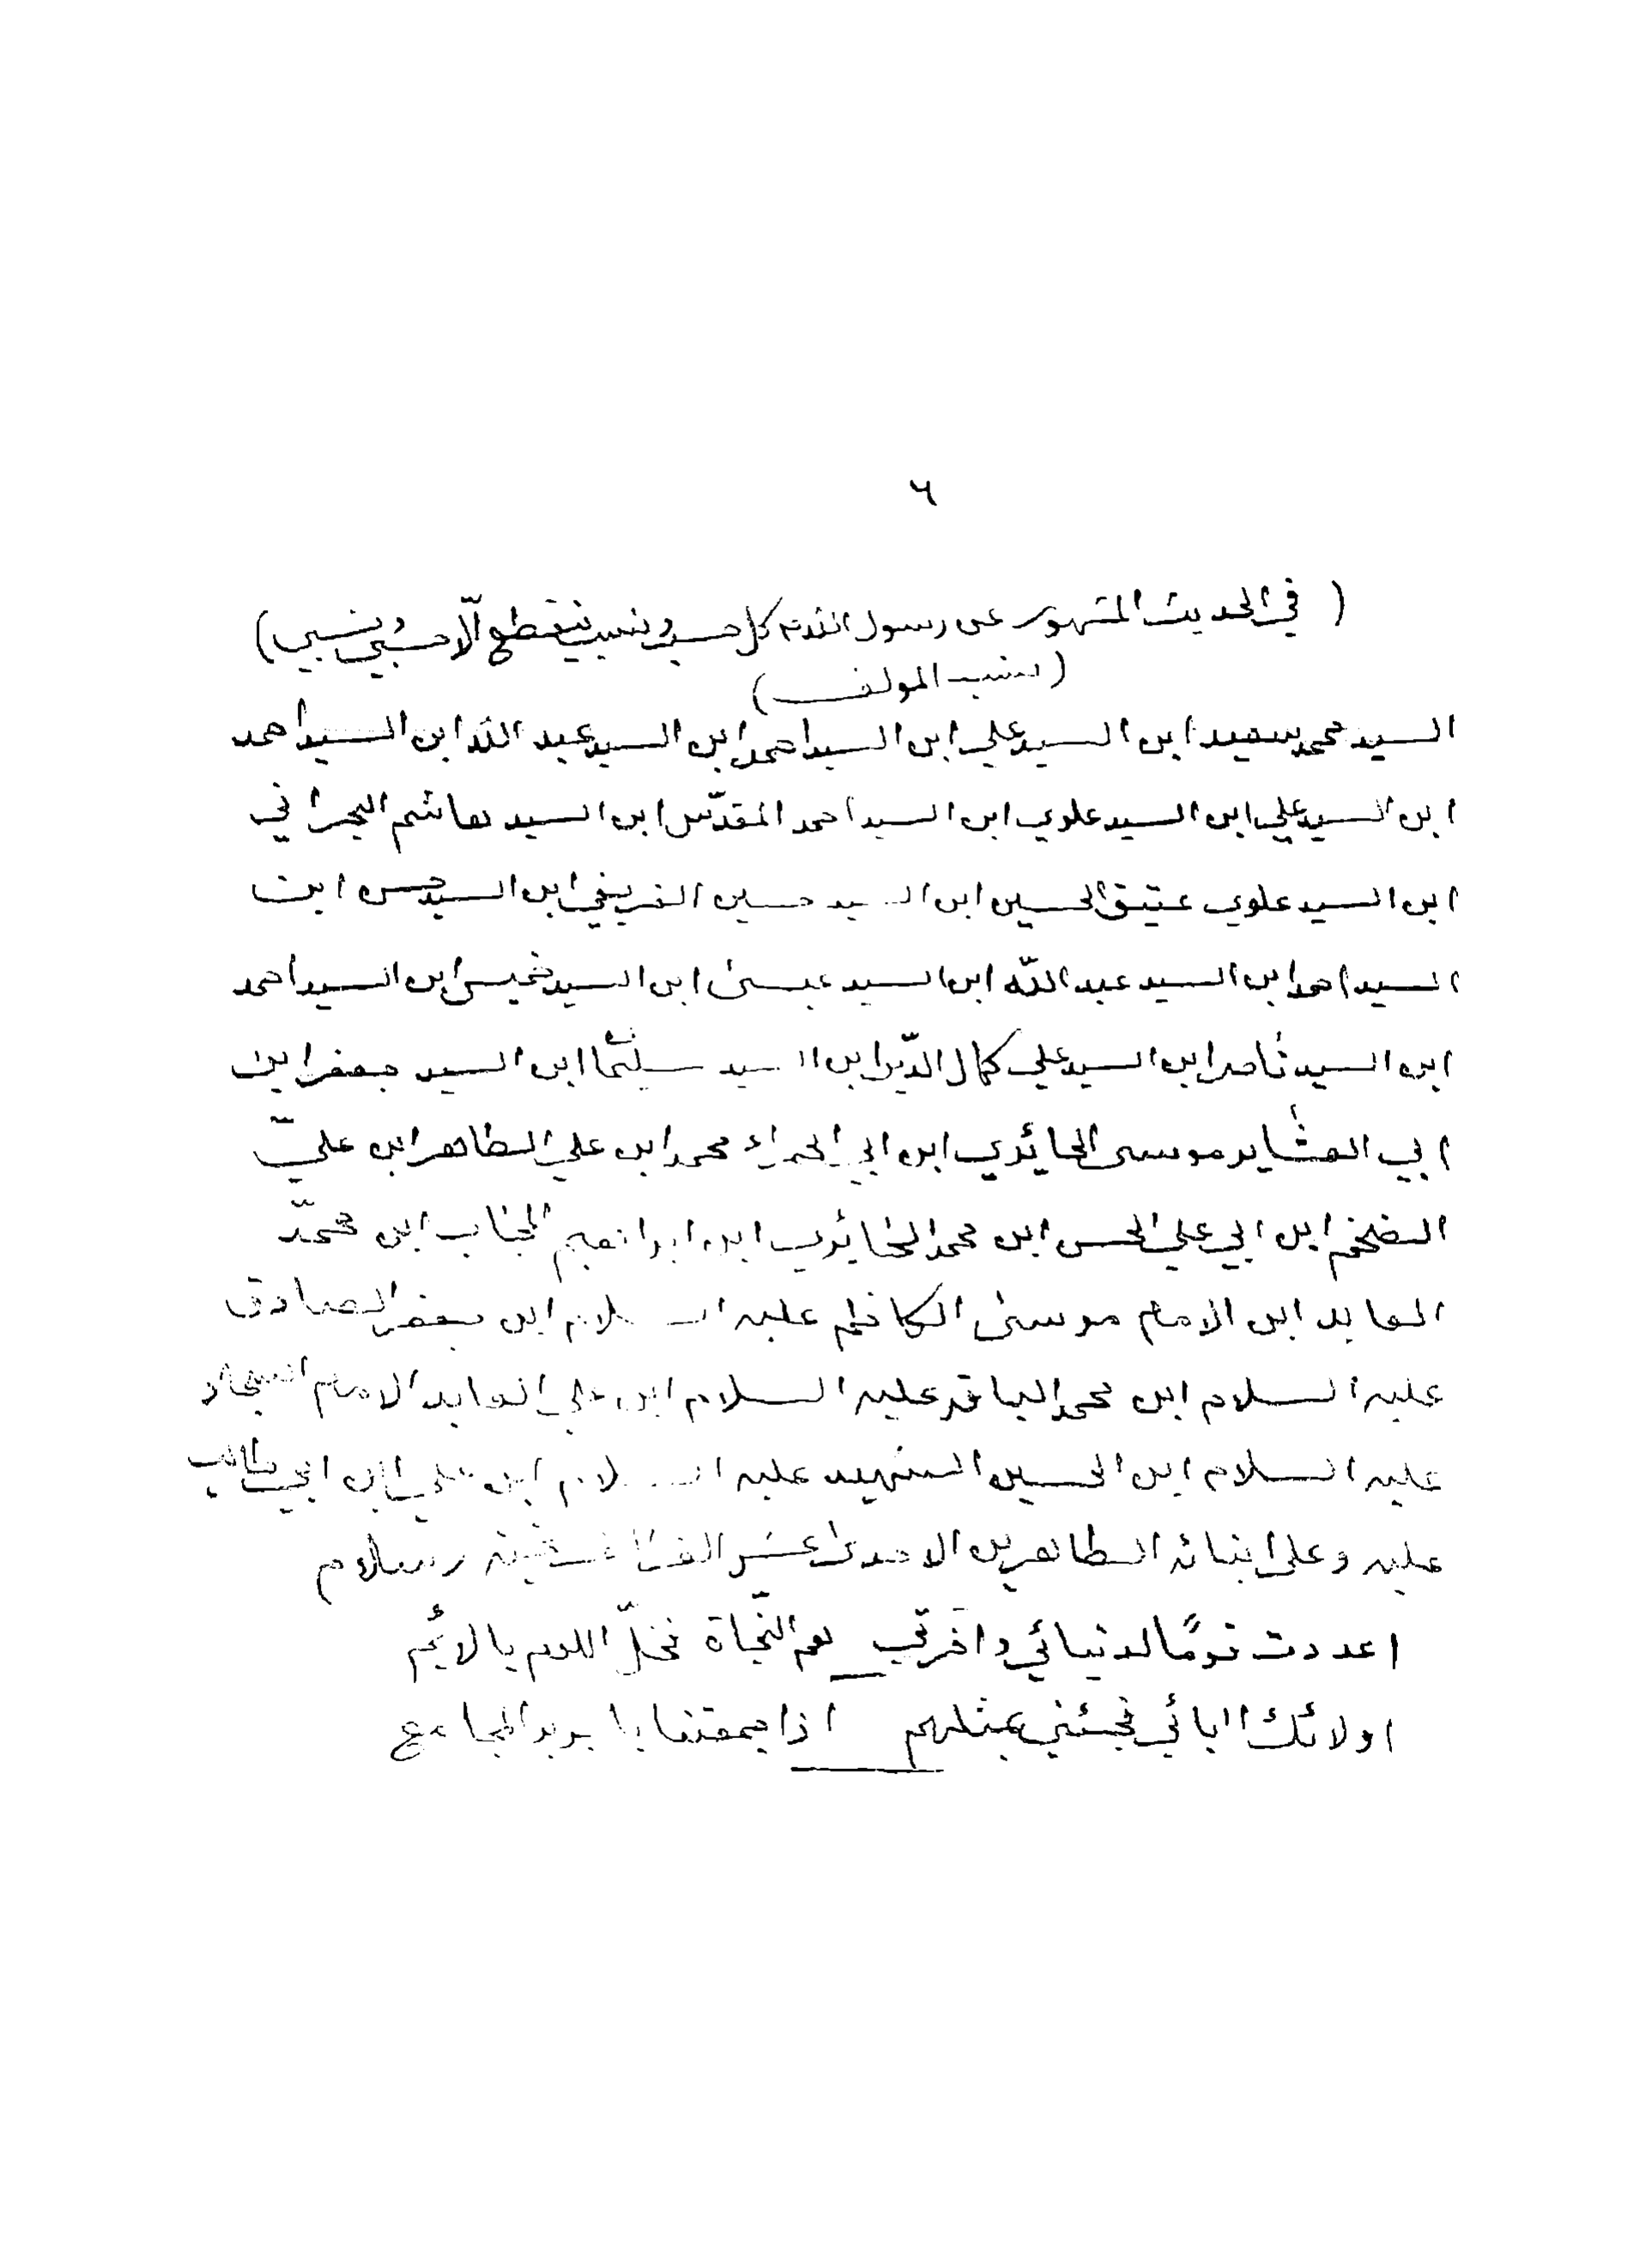 ٦
( في الحديث المشهور عن رسول الله ص كل حسب ونسب ينقطع الّا حسبي ونسبي )
( نسب المولف )
السيد محمد سعيد ابن السيد علي ابن السيد احمد ابن السيد عبد الله ابن السيد احمد
ابن السيد علي ابن السيد علوي ابن السيد احمد المقدّس ابن السيد هاشم البحراني
ابن السيد علوي عتيق الحسين ابن السيد حسين الغريفي ابن السيد حسن ابن
السيد احمد ابن السيد عبد اللّه ابن السيد عيسى ابن السيد خميس ابن السيد احمد
ابن السيد ناصر ابن السيد علي كمال الدّين ابن السيد سليمان ابن السيد جعفر ابن
ابي العشاير موسى الحائري ابن ابي الحمراء محمد ابن علي الطاهر ابن عليّ
الضخم ابن ابي علي الحسن ابن محمد الحائري ابن ابراهيم المجاب ابن محمّد
العابد ابن الامام موسى الكاظم عليه السلام ابن جعفر الصادق
عليه السلام ابن محمد الباقر عليه السلام ابن علي العابد الامام السجاد
عليه السلام ابن الحسين الشهيد عليه السلام ابن علي ابن ابي طالب
عليه وعلى ابنائه الطاهرين الاحدى عشر الف تحية وسلام
اعددت قومًا لدنيائي واخرتي هم النّجاة فخلّ اللوم يا لائم
اولائك اابائي فجئني بمثلهم اذا جمعتنا يا جرير المجامع